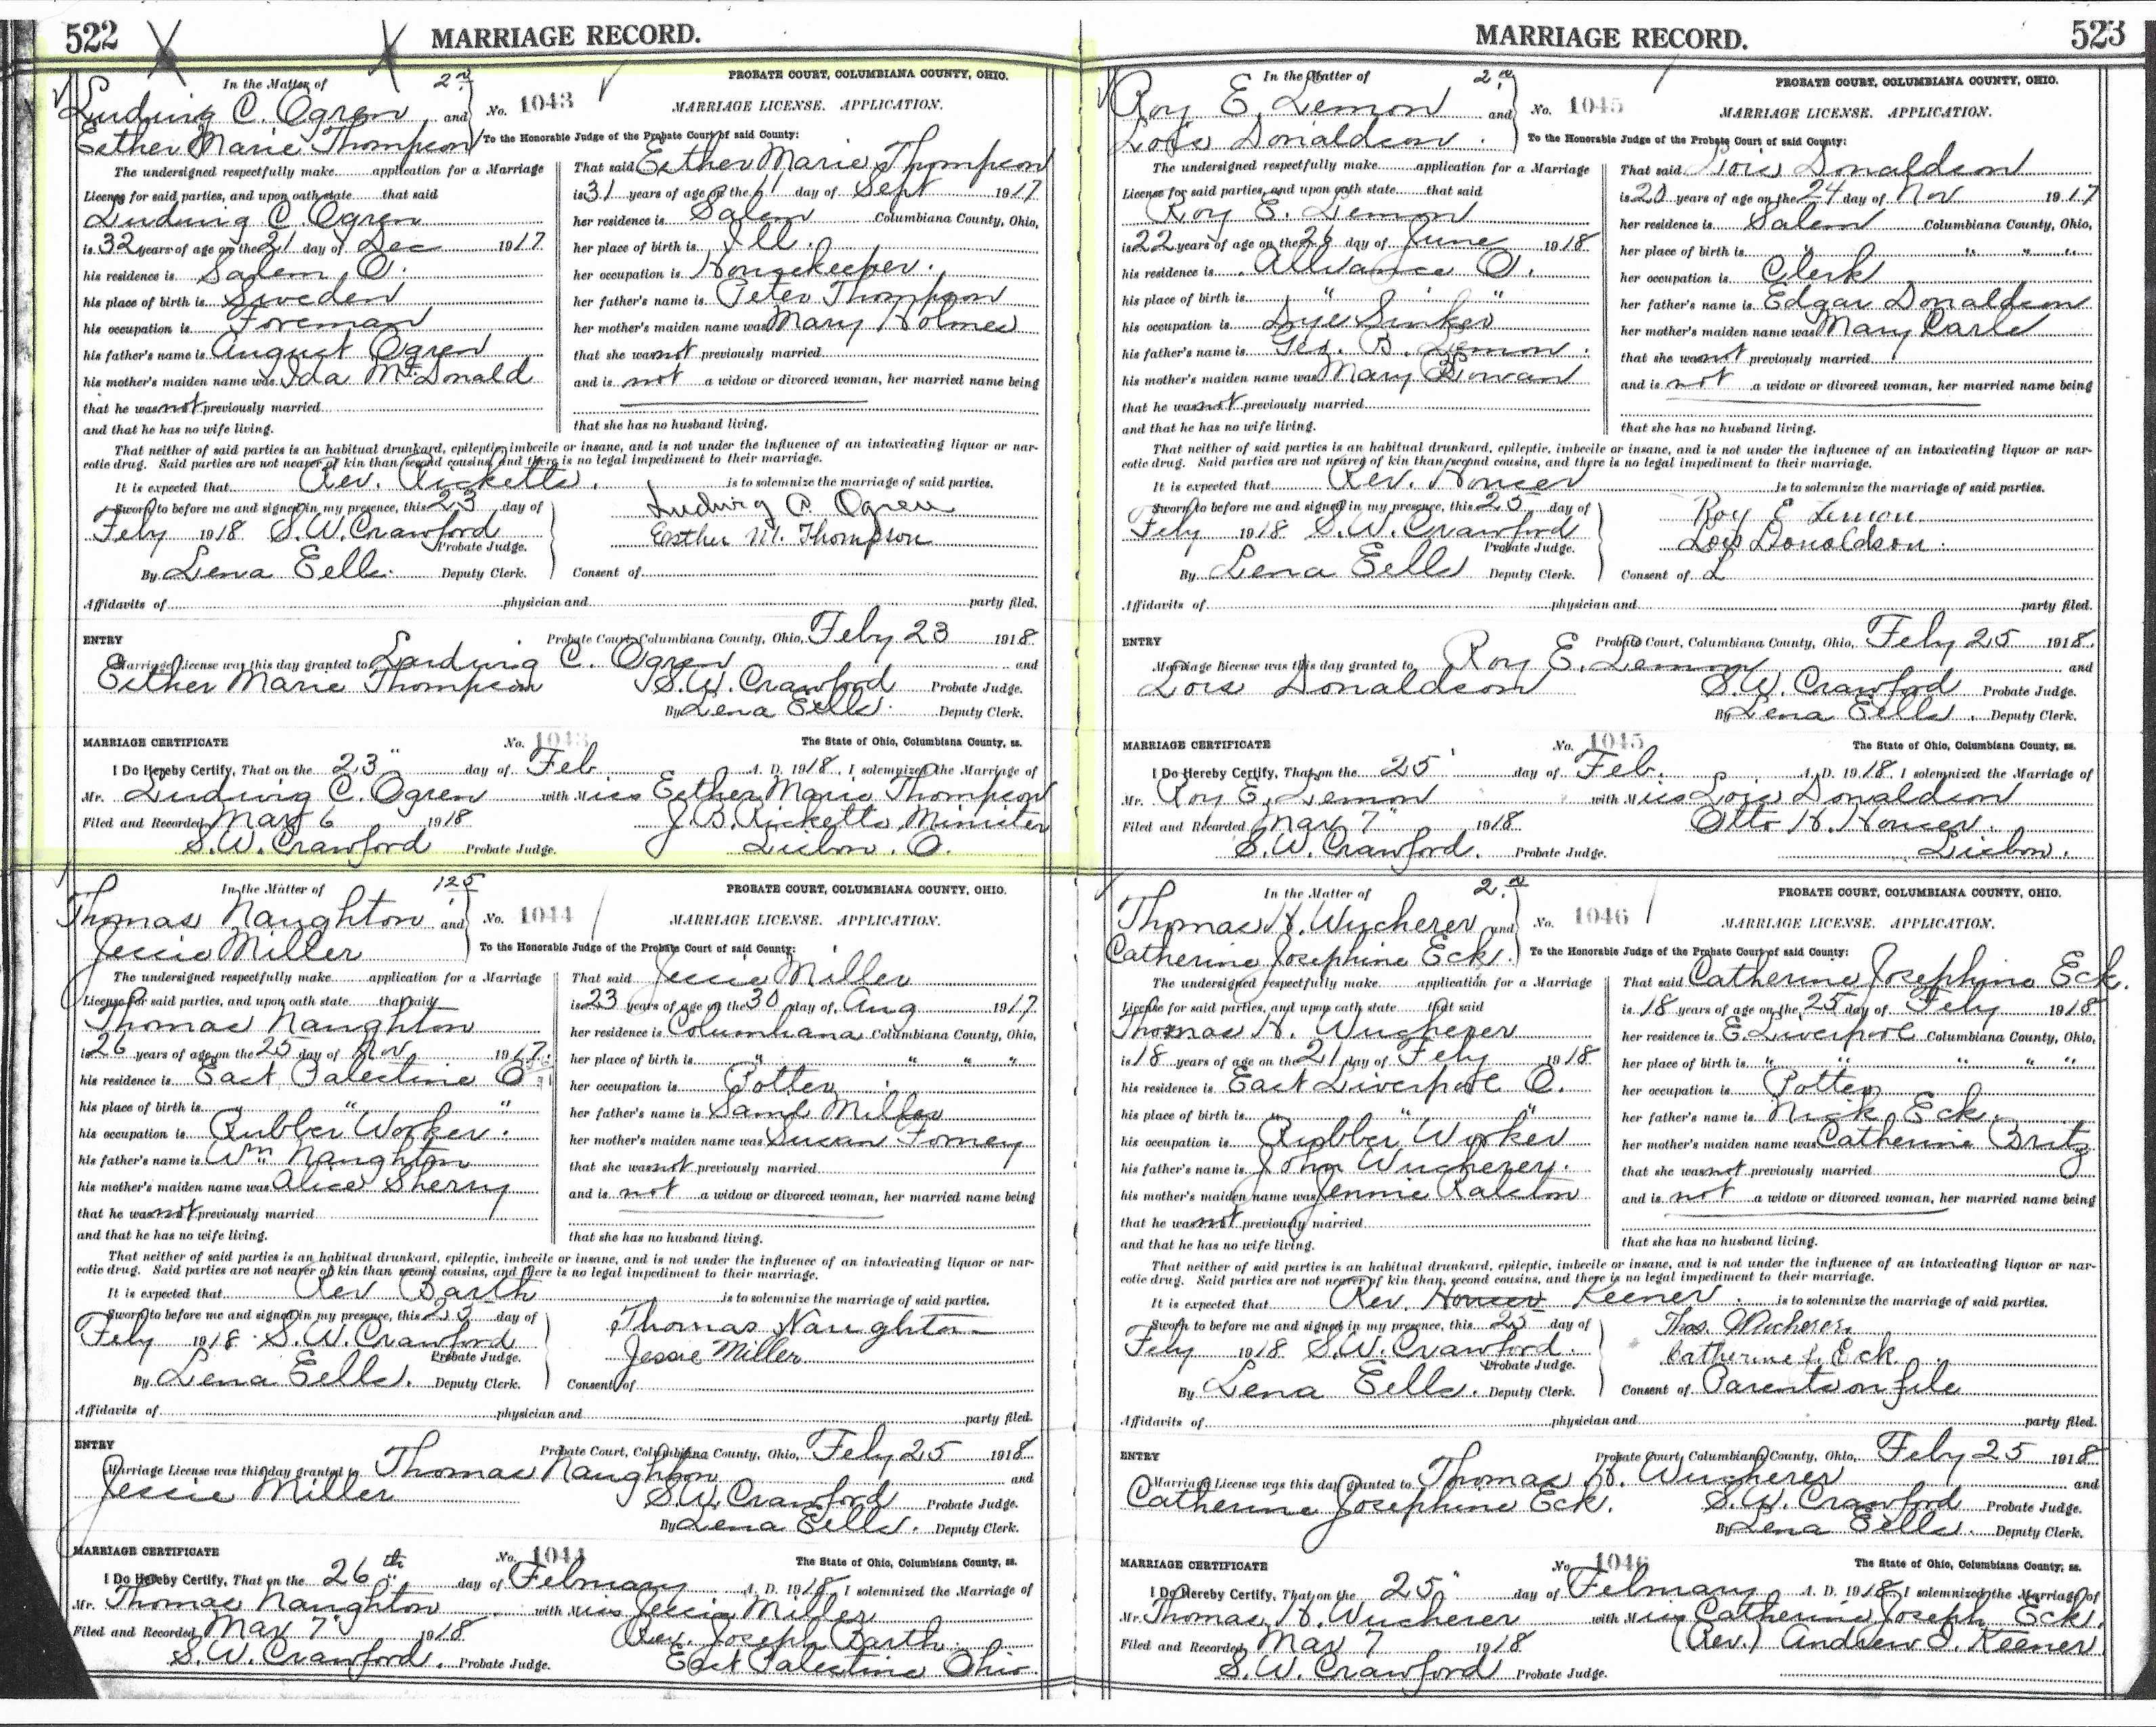 522
MARRIAGE RECORD.
In the Matter of 2.n
PROBATE COURT, COLUMBIANA COUNTY, OHIO.
Ludwig C. Ogren and
No. 1043
MARRIAGE LICENSE. APPLICATION.
Esther Marie Thompson
To the Honorable Judge of the Probate Court of said County:
The undersigned respectfully make application for a Marriage
License for said parties, and upon oath state that said
Ludwig C. Ogren
is 32 years of age on the 21 day of Dec 1917
his residence is Salem, O.
his place of birth is Sweden
his occupation is Foreman
his father's name is August Ogren
his mother's maiden name was Ida McDonald
that he was not previously married
and that he has no wife living.
That said Esther Marie Thompson
is 31 years of age on the 1 day of Sept 1917
her residence is Salem Columbiana County, Ohio,
her place of birth is Ill.
her occupation is Housekeeper.
her father's name is Peter Thompson
her mother's maiden name was Mary Holmes
that she was not previously married
and is not a widow or divorced woman, her married name being
that she has no husband living.
That neither of said parties is an habitual drunkard, epileptic, imbecile or insane, and is not under the influence of an intoxicating liquor or nar-
cotic drug. Said parties are not nearer of kin than second cousins, and there is no legal impediment to their marriage.
It is expected that Rev. Ricketts. is to solemnize the marriage of said parties.
Sworn to before me and signed in my presence, this 23 day of
Feby 1918 S.W. Crawford
Probate Judge.
By Lena Eells. Deputy Clerk.
Ludwig C. Ogren
Esther M. Thompson
Consent of
Affidavits of physician and party filed.
ENTRY
Probate Court, Columbiana County, Ohio, Feby 23 1918
Marriage License was this day granted to Ludwig C. Ogren and
Esther Marie Thompson S.W. Crawford Probate Judge.
By Lena Eells. Deputy Clerk.
MARRIAGE CERTIFICATE No. 1043 The State of Ohio, Columbiana County, ss.
I Do Hereby Certify, That on the 23" day of Feb. A. D. 1918, I solemnized the Marriage of
Mr. Ludwig C. Ogren with Miss Esther Marie Thompson
Filed and Recorded Mar 6 1918 J. B. Ricketts, Minister
S.W. Crawford Probate Judge. Lisbon, O.
In the Matter of 125
PROBATE COURT, COLUMBIANA COUNTY, OHIO.
Thomas Naughton and
No. 1044
MARRIAGE LICENSE. APPLICATION.
Jessie Miller
To the Honorable Judge of the Probate Court of said County:
The undersigned respectfully make application for a Marriage
License for said parties, and upon oath state that said
Thomas Naughton
is 26 years of age on the 25 day of Nov 1917.
his residence is East Palestine O.
his place of birth is " " "
his occupation is Rubber Worker.
his father's name is Wm Naughton
his mother's maiden name was Alice Sherry
that he was not previously married
and that he has no wife living.
That said Jessie Miller
is 23 years of age on the 30 day of Aug 1917
her residence is Columbiana Columbiana County, Ohio,
her place of birth is " " " "
her occupation is Potter
her father's name is Saml Miller
her mother's maiden name was Susan Forney
that she was not previously married
and is not a widow or divorced woman, her married name being
that she has no husband living.
That neither of said parties is an habitual drunkard, epileptic, imbecile or insane, and is not under the influence of an intoxicating liquor or nar-
cotic drug. Said parties are not nearer of kin than second cousins, and there is no legal impediment to their marriage.
It is expected that Rev Barth is to solemnize the marriage of said parties.
Sworn to before me and signed in my presence, this 25 day of
Feby 1918 S.W. Crawford
Probate Judge.
By Lena Eells. Deputy Clerk.
Thomas Naughton
Jessie Miller
Consent of
Affidavits of physician and party filed.
ENTRY
Probate Court, Columbiana County, Ohio, Feby 25 1918
Marriage License was this day granted to Thomas Naughton and
Jessie Miller S.W. Crawford Probate Judge.
By Lena Eells. Deputy Clerk.
MARRIAGE CERTIFICATE No. 1044 The State of Ohio, Columbiana County, ss.
I Do Hereby Certify, That on the 26th day of February A. D. 1918, I solemnized the Marriage of
Mr. Thomas Naughton with Miss Jessie Miller
Filed and Recorded Mar 7" 1918 Rev. Joseph Barth
S.W. Crawford. Probate Judge. East Palestine Ohio.
MARRIAGE RECORD.
523
In the Matter of 2.n
PROBATE COURT, COLUMBIANA COUNTY, OHIO.
Roy E. Lemon and
No. 1045
MARRIAGE LICENSE. APPLICATION.
Lois Donaldson.
To the Honorable Judge of the Probate Court of said County:
The undersigned respectfully make application for a Marriage
License for said parties, and upon oath state that said
Roy E. Lemon
is 22 years of age on the 26 day of June 1918
his residence is Alliance O.
his place of birth is " " "
his occupation is Dye Sinker
his father's name is Geo. B. Lemon.
his mother's maiden name was Mary Rowan
that he was not previously married
and that he has no wife living.
That said Lois Donaldson
is 20 years of age on the 24 day of Nov 1917
her residence is Salem Columbiana County, Ohio,
her place of birth is " " " "
her occupation is Clerk
her father's name is Edgar Donaldson
her mother's maiden name was Mary Carle
that she was not previously married
and is not a widow or divorced woman, her married name being
that she has no husband living.
That neither of said parties is an habitual drunkard, epileptic, imbecile or insane, and is not under the influence of an intoxicating liquor or nar-
cotic drug. Said parties are not nearer of kin than second cousins, and there is no legal impediment to their marriage.
It is expected that Rev. Houser is to solemnize the marriage of said parties.
Sworn to before me and signed in my presence, this 25 day of
Feby 1918 S.W. Crawford
Probate Judge.
By Lena Eells Deputy Clerk.
Roy E Lemon
Lois Donaldson.
Consent of L
Affidavits of physician and party filed.
ENTRY
Probate Court, Columbiana County, Ohio, Feby 25 1918.
Marriage License was this day granted to Roy E. Lemon and
Lois Donaldson S.W. Crawford Probate Judge.
By Lena Eells. Deputy Clerk.
MARRIAGE CERTIFICATE No. 1045 The State of Ohio, Columbiana County, ss.
I Do Hereby Certify, That on the 25' day of Feb. A. D. 1918. I solemnized the Marriage of
Mr. Roy E. Lemon with Miss Lois Donaldson
Filed and Recorded Mar 7" 1918 Otto H. Houser.
S.W. Crawford. Probate Judge. Lisbon.
In the Matter of 2.n
PROBATE COURT, COLUMBIANA COUNTY, OHIO.
Thomas H. Wucherer and
No. 1046
MARRIAGE LICENSE. APPLICATION.
Catherine Josephine Eck.
To the Honorable Judge of the Probate Court of said County:
The undersigned respectfully make application for a Marriage
License for said parties, and upon oath state that said
Thomas H. Wucherer
is 18 years of age on the 21 day of Feby 1918
his residence is East Liverpool O.
his place of birth is " " "
his occupation is Rubber Worker
his father's name is John Wucherer.
his mother's maiden name was Jennie Ralston
that he was not previously married
and that he has no wife living.
That said Catherine Josephine Eck.
is 18 years of age on the 25 day of Feby 1918
her residence is E. Liverpool Columbiana County, Ohio,
her place of birth is " " " " "
her occupation is Potter
her father's name is Nick Eck.
her mother's maiden name was Catherine Britz
that she was not previously married
and is not a widow or divorced woman, her married name being
that she has no husband living.
That neither of said parties is an habitual drunkard, epileptic, imbecile or insane, and is not under the influence of an intoxicating liquor or nar-
cotic drug. Said parties are not nearer of kin than second cousins, and there is no legal impediment to their marriage.
It is expected that Rev. Houser Keener. is to solemnize the marriage of said parties.
Sworn to before me and signed in my presence, this 25 day of
Feby 1918 S.W. Crawford.
Probate Judge.
By Lena Eells. Deputy Clerk.
Thos. Wucherer.
Catherine J. Eck
Consent of Parents on file
Affidavits of physician and party filed.
ENTRY
Probate Court, Columbiana County, Ohio, Feby 25 1918
Marriage License was this day granted to Thomas H. Wucherer and
Catherine Josephine Eck. S.W. Crawford Probate Judge.
By Lena Eells. Deputy Clerk.
MARRIAGE CERTIFICATE No. 1046 The State of Ohio, Columbiana County, ss.
I Do Hereby Certify, That on the 25" day of February A. D. 1918, I solemnized the Marriage of
Mr. Thomas H. Wucherer with Miss Catherine Joseph. Eck.
Filed and Recorded Mar 7 1918 (Rev.) Andrew I. Keener
S.W. Crawford Probate Judge.